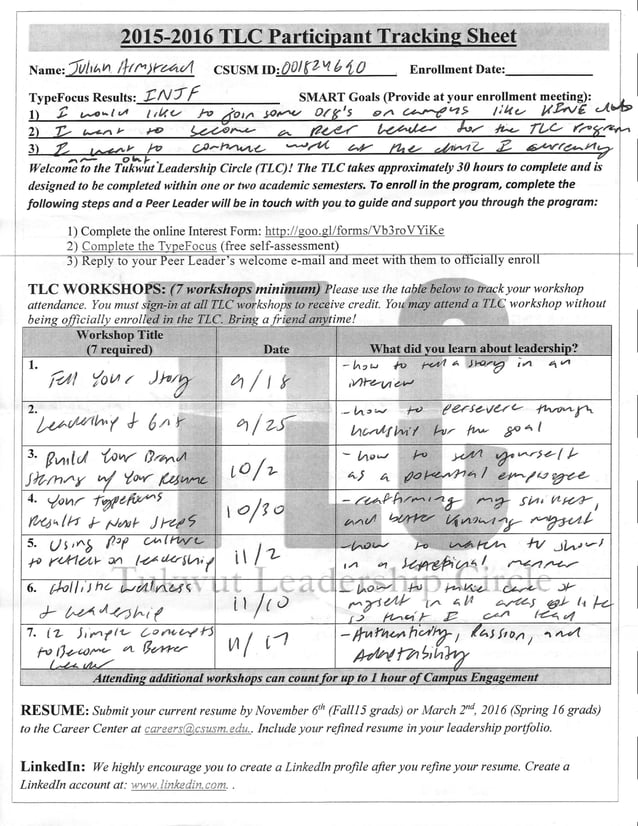 2015-2016 TLC Participant Tracking Sheet
Name: Julian Armstead CSUSM ID: 001824690 Enrollment Date:
TypeFocus Results: INJF SMART Goals (Provide at your enrollment meeting):
1) I would like to join some org's on campus like KINE club
2) I want to become a peer leader for the TLC program
3) I want to continue work at the clinic I currently
am at
Welcome to the Tukwut Leadership Circle (TLC)! The TLC takes approximately 30 hours to complete and is
designed to be completed within one or two academic semesters. To enroll in the program, complete the
following steps and a Peer Leader will be in touch with you to guide and support you through the program:
1) Complete the online Interest Form: http://goo.gl/forms/Vb3roVYiKe
2) Complete the TypeFocus (free self-assessment)
3) Reply to your Peer Leader's welcome e-mail and meet with them to officially enroll
TLC WORKSHOPS: (7 workshops minimum) Please use the table below to track your workshop
attendance. You must sign-in at all TLC workshops to receive credit. You may attend a TLC workshop without
being officially enrolled in the TLC. Bring a friend anytime!
Workshop Title
(7 required) Date What did you learn about leadership?
1. Tell Your Story 9/18 -how to tell a story in an
interview
2. Leadership & Grit 9/25 -how to persevere through
hardship for the goal
3. Build Your Brand
Starting w/ Your Resume 10/2 -how to sell yourself
as a potential employee
4. Your TypeFocus
Results & Next Steps 10/30 -reaffirming my
and better knowing myself
5. Using Pop culture
to reflect on leadership 11/2 -how to watch tv shows
in a beneficial manner
6. Hollistic wellness
& Leadership 11/10 -how to take care of
myself in all areas of life
so that I can lead
7. 12 simple concepts
to Become a Better
Leader 11/17 -Authenticity, Passion, and
Adaptability
TLC
Tukwut Leadership Circle
Attending additional workshops can count for up to 1 hour of Campus Engagement
RESUME: Submit your current resume by November 6th (Fall15 grads) or March 2nd, 2016 (Spring 16 grads)
to the Career Center at careers@csusm.edu.. Include your refined resume in your leadership portfolio.
LinkedIn: We highly encourage you to create a LinkedIn profile after you refine your resume. Create a
LinkedIn account at: www.linkedin.com. .